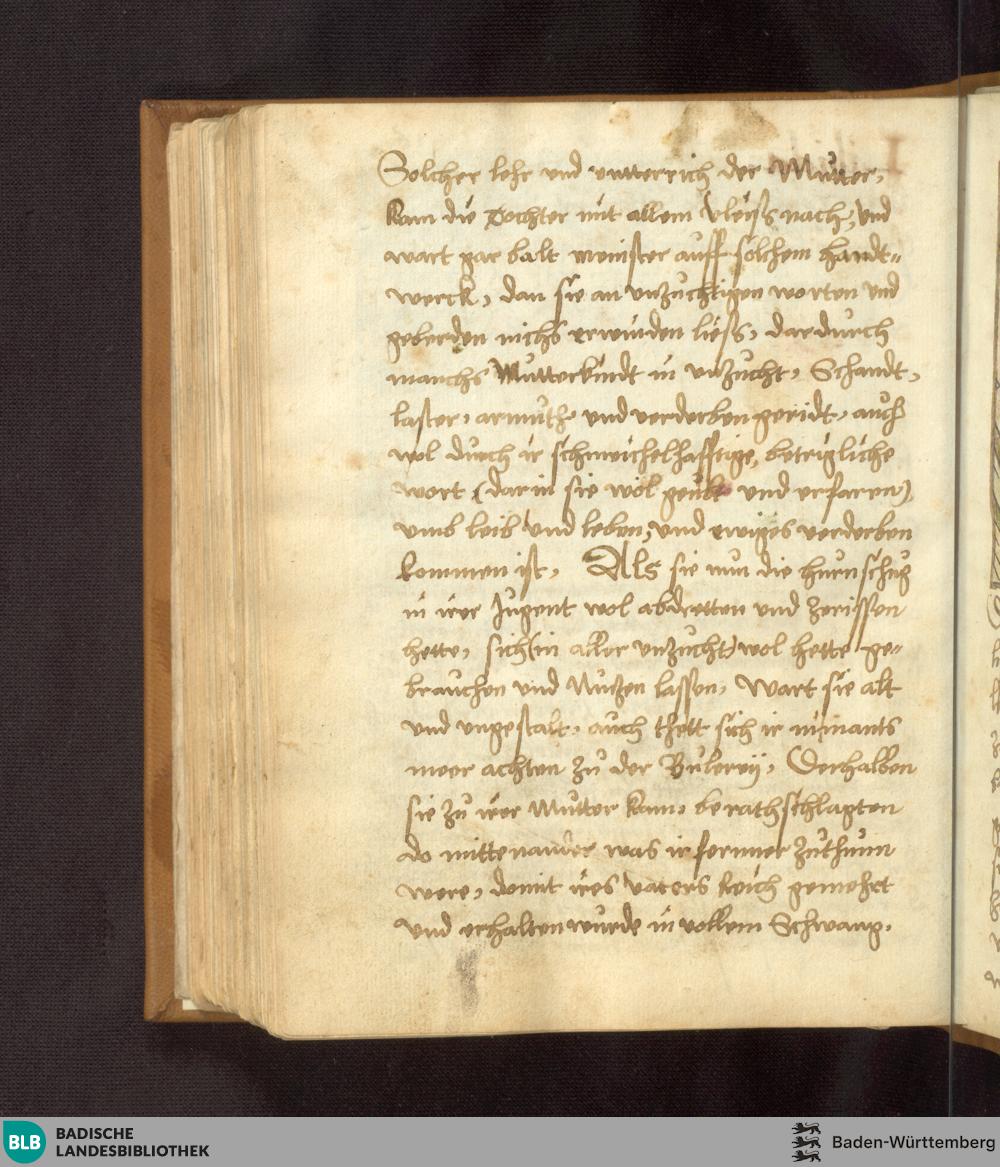 Solcher lehr und untterrich der Mutter,
kam die Tochter mit allem vleiß nach, und
wart gar balt meinster auff solchem handt-
werck, dan sie an unzuchtigen worten und
geberden nichs erwinden ließ, dardurch
manchs Mutterkindt in unzucht, Schandt,
laster, armuth und verderben geridt, auch
wol durch ir schmeichelhafftige, betrigliche
wort, (darin sie wol geubt und erfaren)
umb leib und leben, und ewiges verderben
kommen ist, Als sie nun die hurn schug
in irer Jugent wol abdretten und zerissen
hette, sich (in aller unzucht) wol hette ge-
brauchen und Nutzen lassen, Wart sie alt
und ungestalt, auch thett sich ir nimants
meer achten zu der Bulereÿ, Derhalben
sie zu irer Mutter kam, berathschlagten
do mittenander was ir ferrner zuthunn
were, domit ires vaters Reich gemehrt
und erhalten wurde in vollem Schwang.
BLB
BADISCHE
LANDESBIBLIOTHEK
Baden-Württemberg